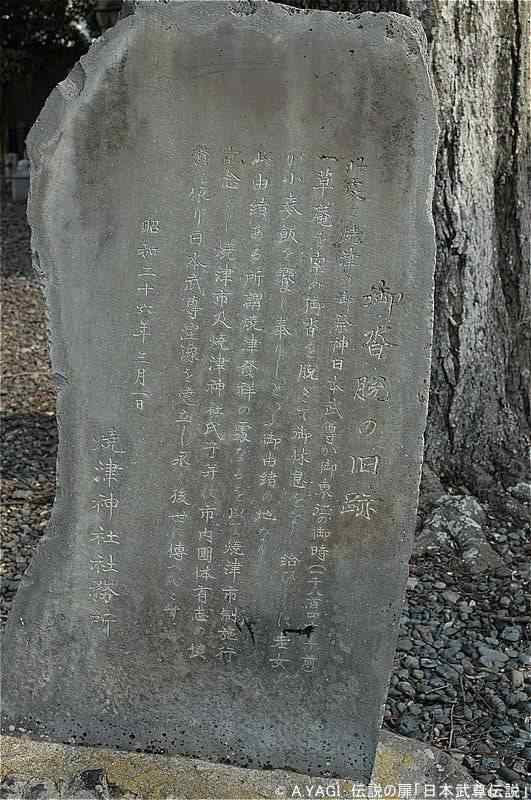 御沓脱の旧跡
此處は焼津神社御祭神日本武尊が御東征の御時
一草庵を案め御沓を脱ぎて御休息をなし給ひしに老女
が小麦飯を饗し奉りしという御由緒の地なり
此由緒ある所謂焼津發祥の霊なるを以て焼津市制施行
記念とし焼津市及焼津神社氏子年 市内團体有志の
懐り日本武尊霊像を建立し永く後世に傳へんとす
昭和二十六年三月一日
焼津神社社務所
© A.YAGI 伝説の扉「日本武尊伝説」